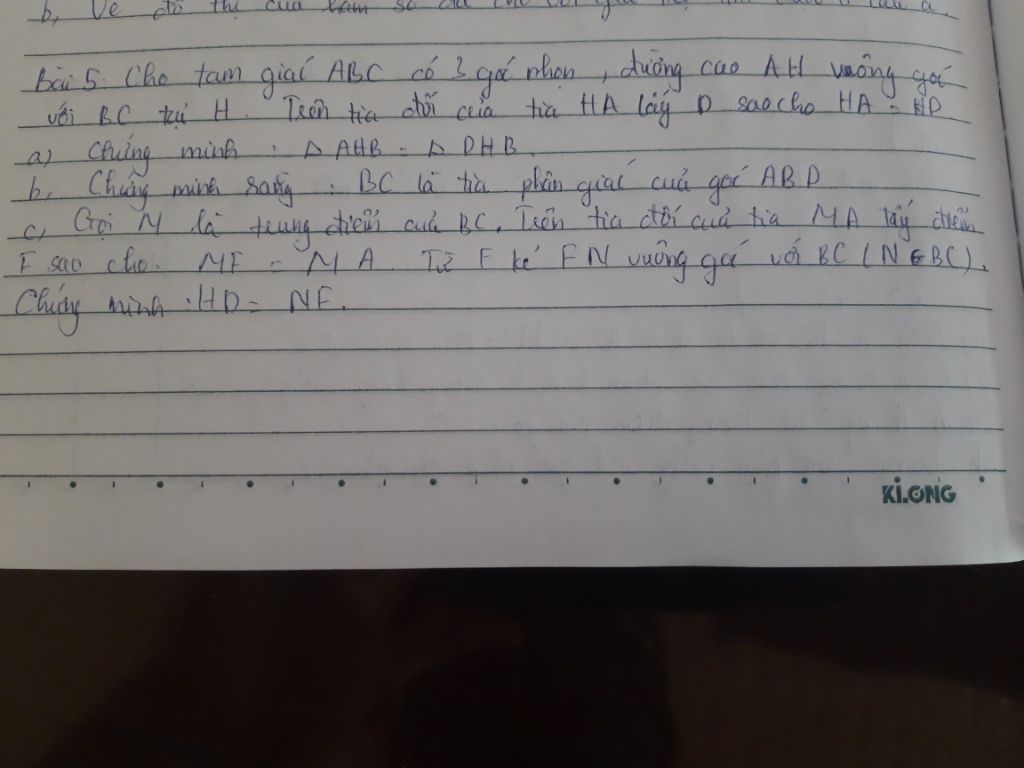 b, Vẽ đồ thị của hàm số đã cho với giá trị a
Bài 5. Cho tam giác ABC có 3 góc nhọn, đường cao AH vuông góc
với BC tại H. Trên tia đối của tia HA lấy D sao cho HA = HD
a) Chứng minh : Δ AHB = Δ DHB.
b, Chứng minh rằng : BC là tia phân giác cuả góc ABD
c, Gọi M là trung điểm cuả BC. Trên tia đối cuả tia MA lấy điểm
F sao cho. MF = MA. Từ F kẻ FN vuông góc với BC (N ∈ BC).
Chứng minh : HD = NF.
KLONG